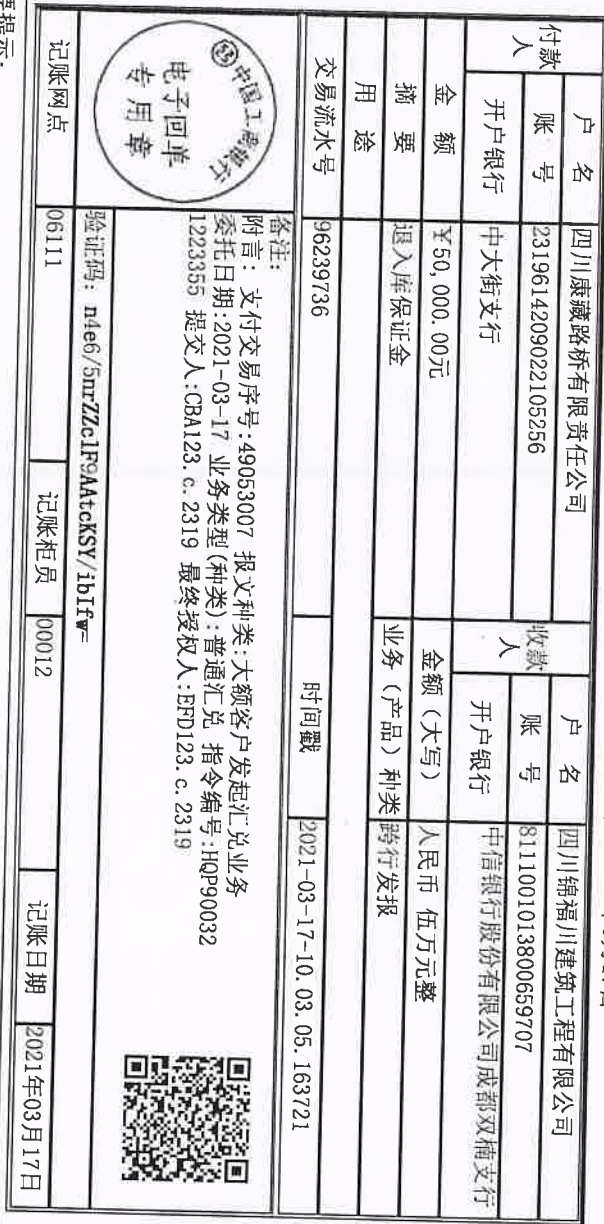 付款人 户 名 四川康藏路桥有限责任公司 收款人 户 名 四川锦福川建筑工程有限公司
账 号 2319614209022105256 账 号 8111001013800659707
开户银行 中大街支行 开户银行 中信银行股份有限公司成都双楠支行
金 额 ¥50,000.00元 金额（大写） 人民币 伍万元整
摘 要 退入库保证金 业务（产品）种类 跨行发报
用 途
交易流水号 96239736 时间戳 2021-03-17-10.03.05.163721
中国工商银行
电子回单
专用章
备注：
附言： 支付交易序号:49053007 报文种类:大额客户发起汇兑业务
委托日期:2021-03-17 业务类型(种类):普通汇兑 指令编号:HQP90032
1223355 提交人:CBA123.c.2319 最终授权人:EFD123.c.2319
验证码： n4e6/5nrZZc1F9AAtcKSY/ibIfw=
记账网点 06111 记账柜员 00012 记账日期 2021年03月17日
提示：